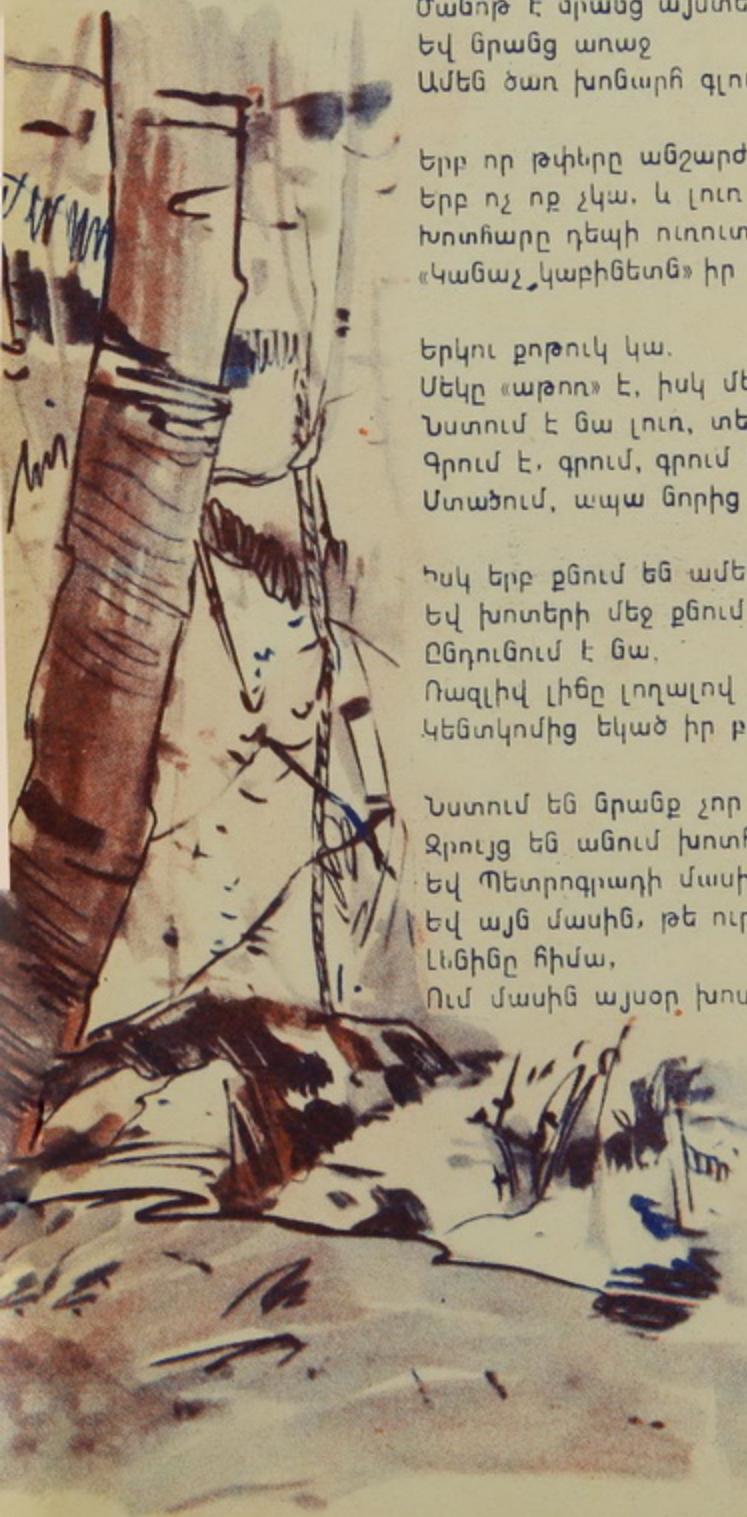 Ծանոթ է նրանց
Եվ նրանց առաջ
Ամեն ծառ խոնարհ
Երբ որ թփերը
Երբ ոչ ոք չկա. և լուռ
Խոտհարը դեպի
«Կանաչ կաբինետն» իր
Երկու քոթուկ կա.
Մեկը «աթոռ» է, իսկ
Նստում է նա լուռ,
Գրում է. գրում, գրում
Մտածում, ապա նորից
Իսկ երբ քնում են
Եվ խոտերի մեջ քնում
Ընդունում է նա.
Ռազլիվ լիճը լողալով
Կենտկոմից եկած իր
Նստում են նրանք չոր
Զրույց են անում
Եվ Պետրոգրադի
Եվ այն մասին, թե
Լենինը հիմա,
Ում մասին այսօր